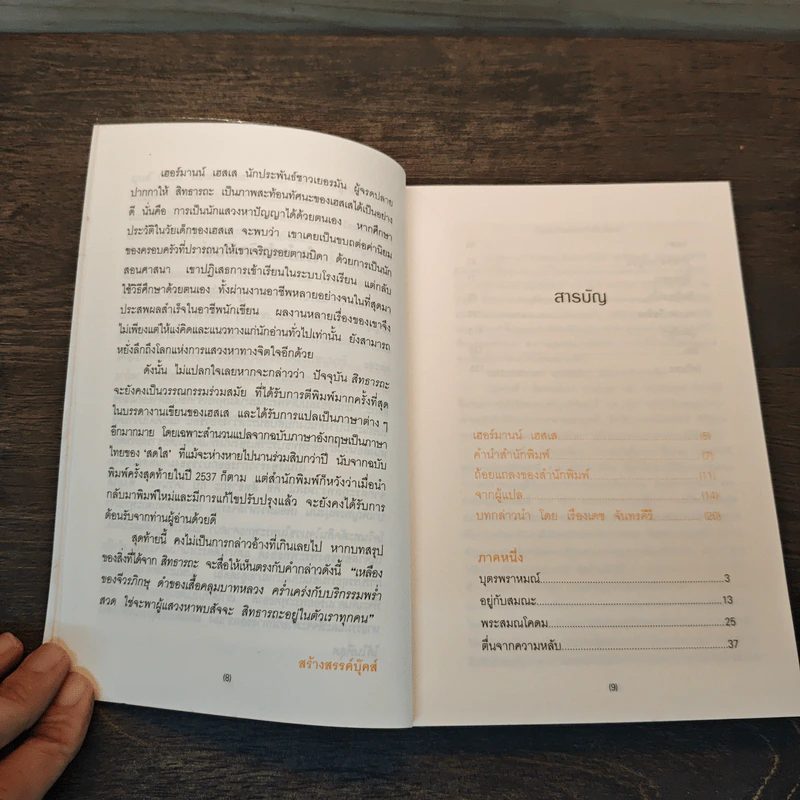 เฮอร์มานน์ เฮสเส นักประพันธ์ชาวเยอรมัน ผู้จรดปลาย
ปากกาให้ สิทธารถะ เป็นภาพสะท้อนทัศนะของเฮสเสได้เป็นอย่าง
ดี นั่นคือ การเป็นนักแสวงหาปัญญาได้ด้วยตนเอง หากศึกษา
ประวัติในวัยเด็กของเฮสเส จะพบว่า เขาเคยเป็นขบถต่อค่านิยม
ของครอบครัวที่ปรารถนาให้เขาเจริญรอยตามบิดา ด้วยการเป็นนัก
สอนศาสนา เขาปฏิเสธการเข้าเรียนในระบบโรงเรียน แต่กลับ
ใช้วิธีศึกษาด้วยตนเอง ทั้งผ่านงานอาชีพหลายอย่างจนในที่สุดมา
ประสพผลสำเร็จในอาชีพนักเขียน ผลงานหลายเรื่องของเขาจึง
ไม่เพียงแต่ให้แง่คิดและแนวทางแก่นักอ่านทั่วไปเท่านั้น ยังสามารถ
หยั่งลึกถึงโลกแห่งการแสวงหาทางจิตใจอีกด้วย
ดังนั้น ไม่แปลกใจเลยหากจะกล่าวว่า ปัจจุบัน สิทธารถะ
จะยังคงเป็นวรรณกรรมร่วมสมัย ที่ได้รับการตีพิมพ์มากครั้งที่สุด
ในบรรดางานเขียนของเฮสเส และได้รับการแปลเป็นภาษาต่าง ๆ
อีกมากมาย โดยเฉพาะสำนวนแปลจากฉบับภาษาอังกฤษเป็นภาษา
ไทยของ "สดใส" ที่แม้จะห่างหายไปนานร่วมสิบกว่าปี นับจากฉบับ
พิมพ์ครั้งสุดท้ายในปี 2537 ก็ตาม แต่สำนักพิมพ์ก็หวังว่าเมื่อนำ
กลับมาพิมพ์ใหม่และมีการแก้ไขปรับปรุงแล้ว จะยังคงได้รับการ
ต้อนรับจากท่านผู้อ่านด้วยดี
สุดท้ายนี้ คงไม่เป็นการกล่าวอ้างที่เกินเลยไป หากบทสรุป
ของสิ่งที่ได้จาก สิทธารถะ จะสื่อให้เห็นตรงกับคำกล่าวดังนี้ "เหลือง
ของจีวรภิกษุ ดำของเสื้อคลุมบาทหลวง คร่ำเคร่งกับบริกรรมพร่ำ
สวด ใช่จะพาผู้แสวงหาพบสัจจะ สิทธารถะอยู่ในตัวเราทุกคน"
สร้างสรรค์บุ๊คส์
(8)
สารบัญ
เฮอร์มานน์ เฮสเส (5)
คำนำสำนักพิมพ์ (7)
ถ้อยแถลงของสำนักพิมพ์ (11)
จากผู้แปล (14)
บทกล่าวนำ โดย เรืองเดช จันทรคีรี (20)
ภาคหนึ่ง
บุตรพราหมณ์ 3
อยู่กับสมณะ 13
พระสมณโคดม 25
ตื่นจากความหลับ 37
(9)